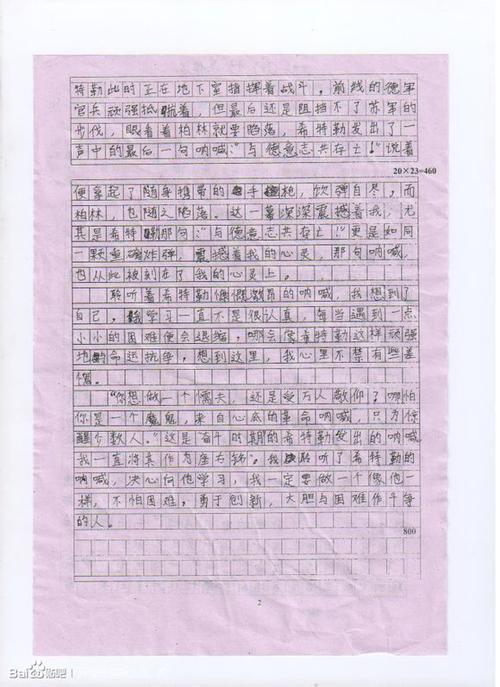 特勒此时正在地下室指挥着战斗。前线的德军
官兵顽强抵抗着,但最后还是阻挡不了苏军的
步伐,眼看着柏林就要陷落,希特勒发出了一
声中的最后一句呐喊:“与德意志共存亡!”说着
20×23=460
便拿起了随身携带的手枪,饮弹自尽,而
柏林,也随之陷落。这一幕深深震撼着我,尤
其是希特勒那句:“与德意志共存亡!”更是如同
一颗重磅炸弹,震撼着我的心灵,那句呐喊,
也从此被刻在了我的心灵上。
聆听着希特勒慷慨激昂的呐喊,我想到了
自己。学习一直不是很认真,每当遇到一点
小小的困难便会退缩,哪会像希特勒这样顽强
地与命运抗争,想到这里,我心里不禁有些羞
愧。
“你想做一个懦夫,还是受万人敬仰?哪怕
你是一个魔鬼,来自心底的革命呐喊,只为惊
醒个数人。”这是奋斗时期的希特勒发出的呐喊
我一直将其作为座右铭。我聆听了希特勒的
呐喊,决心向他学习,我一定要做一个像他一
样,不怕困难,勇于创新,大胆与困难作斗争
的人。
800
2
Bai du 贴吧